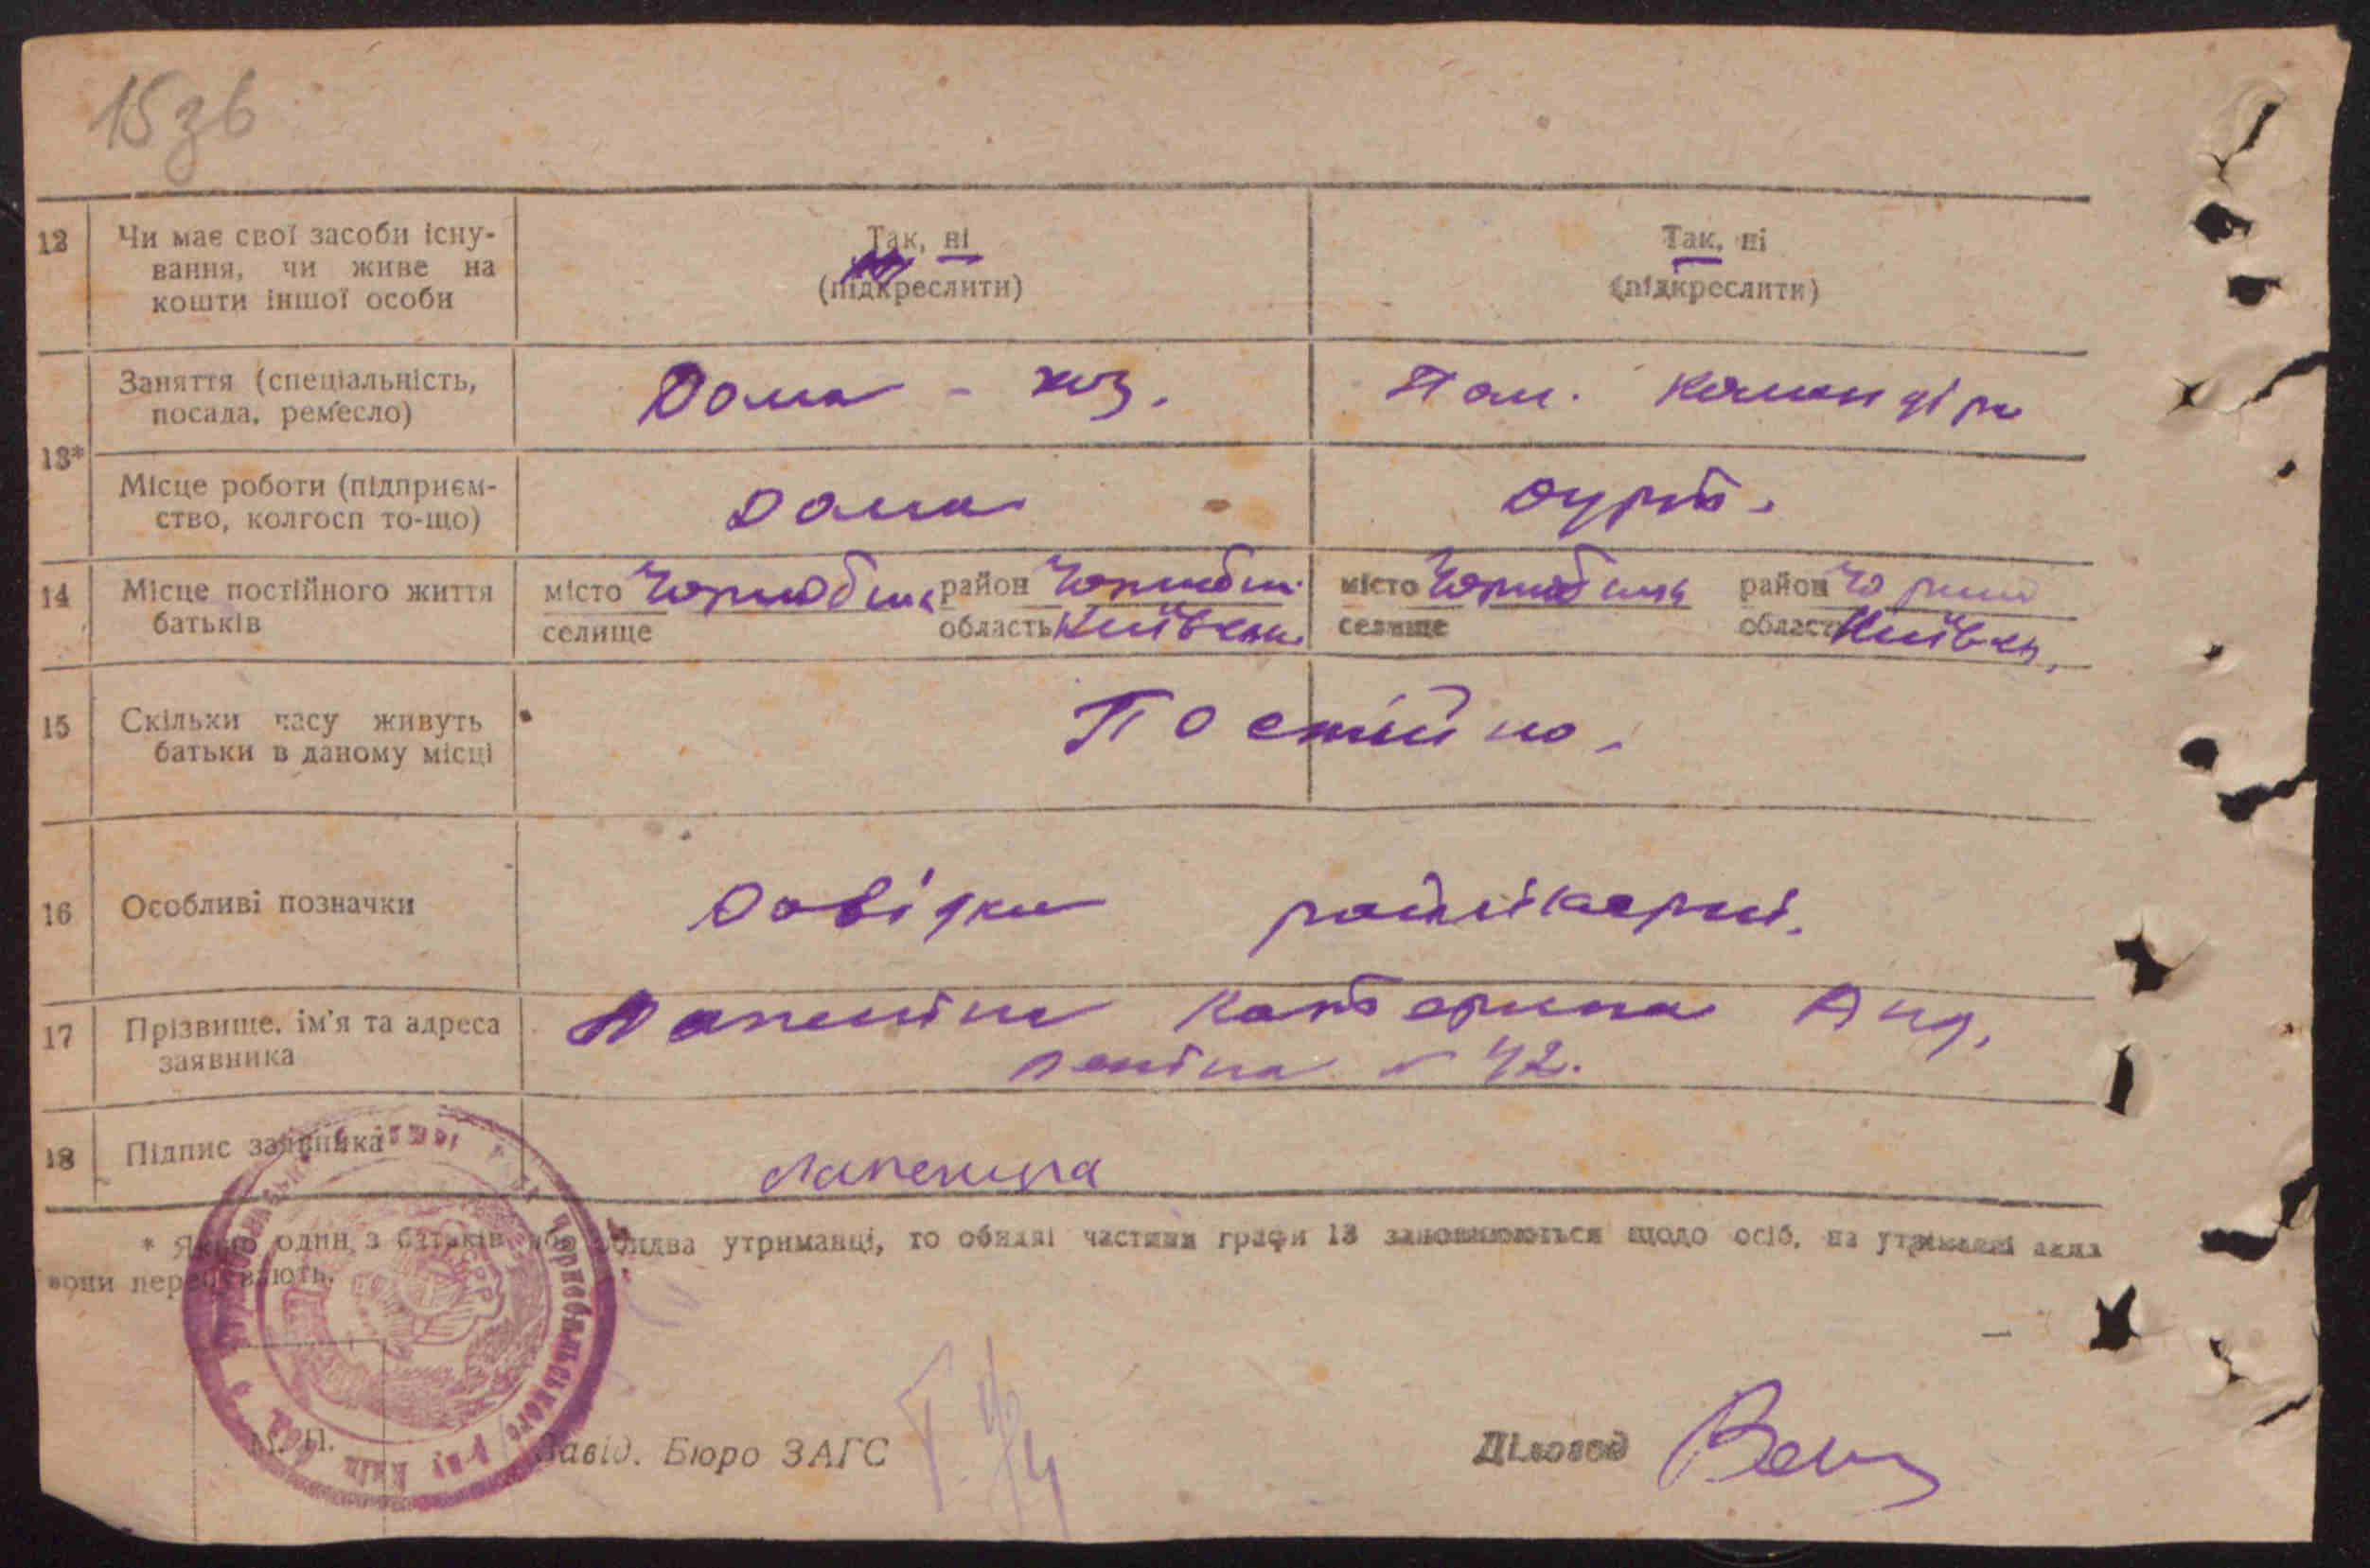 15зв
12 Чи має свої засоби існу-
вання, чи живе на
кошти іншої особи
Так, ні
(підкреслити)
Так, ні
(підкреслити)
13*
Заняття (спеціальність,
посада, ремесло)
Дома - хоз.
Пом. командіра
Місце роботи (підприєм-
ство, колгосп то-що)
дома
14 Місце постійного життя
батьків
місто Чорнобиль район Чорнобил.
селище область Київськ.
місто Чорнобиль район Чорноб
селище область Київсь.
15 Скільки часу живуть
батьки в даному місці
Постійно.
16 Особливі позначки
Довідка райлікарні.
17 Прізвище, ім'я та адреса
заявника
Лапеніна Катерина Анд.
Леніна № 42.
18 Підпис заявника
Лапенина
* Якщо один з батьків або обидва утриманці, то обидві частини графи 13 заповнюються щодо осіб, на утриманні яких
вони перебувають.
Чорнобильського р-ну
М. П.
Завід. Бюро ЗАГС
Діловод